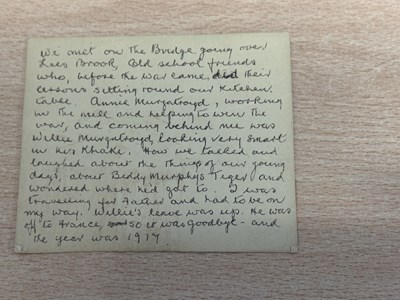 We met on the Bridge going over
Lees Brook, Old school friends
who, before the War came, did their
lessons sitting round our kitchen
table. Annie Murgatroyd, working
in the mill and helping to win the
war, and coming behind me was
Willie Murgatroyd, looking very smart
in his Khaki. How we talked and
laughed about the things of our young
days, about Biddy Murphys Tiger and
wondered where he'd got to. I was
travelling for Father and had to be on
my way. Willie's leave was up. He was
off to France, so it was goodbye - and
the year was 1917